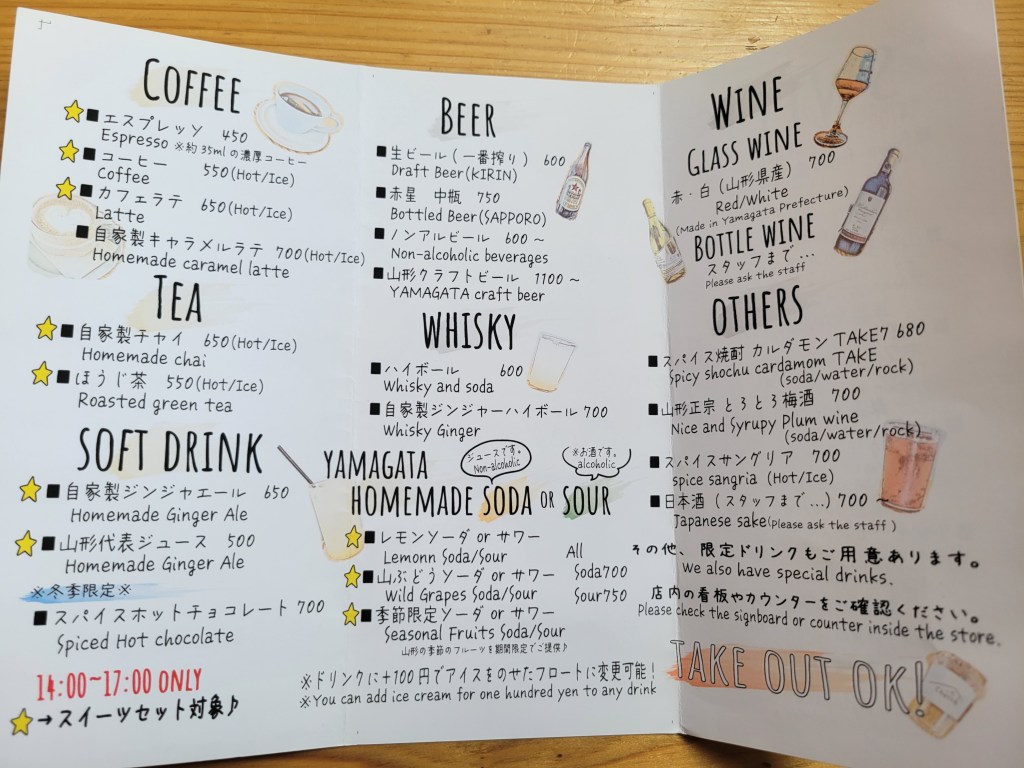 COFFEE
■エスプレッソ 450
Espresso ※約35mlの濃厚コーヒー
■コーヒー 550(Hot/Ice)
Coffee
■カフェラテ 650(Hot/Ice)
Latte
■自家製キャラメルラテ 700(Hot/Ice)
Homemade caramel latte
TEA
■自家製チャイ 650(Hot/Ice)
Homemade chai
■ほうじ茶 550(Hot/Ice)
Roasted green tea
SOFT DRINK
■自家製ジンジャエール 650
Homemade Ginger Ale
■山形代表ジュース 500
Homemade Ginger Ale
※冬季限定※
■スパイスホットチョコレート 700
Spiced Hot chocolate
14:00~17:00 ONLY
→スイーツセット対象♪
BEER
■生ビール(一番搾り) 600
Draft Beer(KIRIN)
■赤星 中瓶 750
Bottled Beer(SAPPORO)
■ノンアルビール 600~
Non-alcoholic beverages
■山形クラフトビール 1100~
YAMAGATA craft beer
WHISKY
■ハイボール 600
Whisky and soda
■自家製ジンジャーハイボール 700
Whisky Ginger
YAMAGATA
ジュースです。
Non-alcoholic
※お酒です。
alcoholic
HOMEMADE SODA OR SOUR
■レモンソーダ or サワー
Lemonn Soda/Sour
■山ぶどうソーダ or サワー
Wild Grapes Soda/Sour
■季節限定ソーダ or サワー
Seasonal Fruits Soda/Sour
山形の季節のフルーツを期間限定でご提供♪
All
Soda700
Sour750
※ドリンクに+100円でアイスをのせたフロートに変更可能！
※You can add ice cream for one hundred yen to any drink
WINE
GLASS WINE
赤・白(山形県産) 700
Red/White
(Made in Yamagata Prefecture)
BOTTLE WINE
スタッフまで...
Please ask the staff
OTHERS
■スパイス焼酎 カルダモン TAKE7 680
Spicy shochu cardamom TAKE
(soda/water/rock)
■山形正宗 とろとろ梅酒 700
Nice and Syrupy Plum wine
(soda/water/rock)
■スパイスサングリア 700
spice sangria (Hot/Ice)
■日本酒(スタッフまで...)700~
Japanese sake(Please ask the staff)
その他、限定ドリンクもご用意あります。
We also have special drinks.
店内の看板やカウンターをご確認ください。
Please check the signboard or counter inside the store.
TAKE OUT OK!